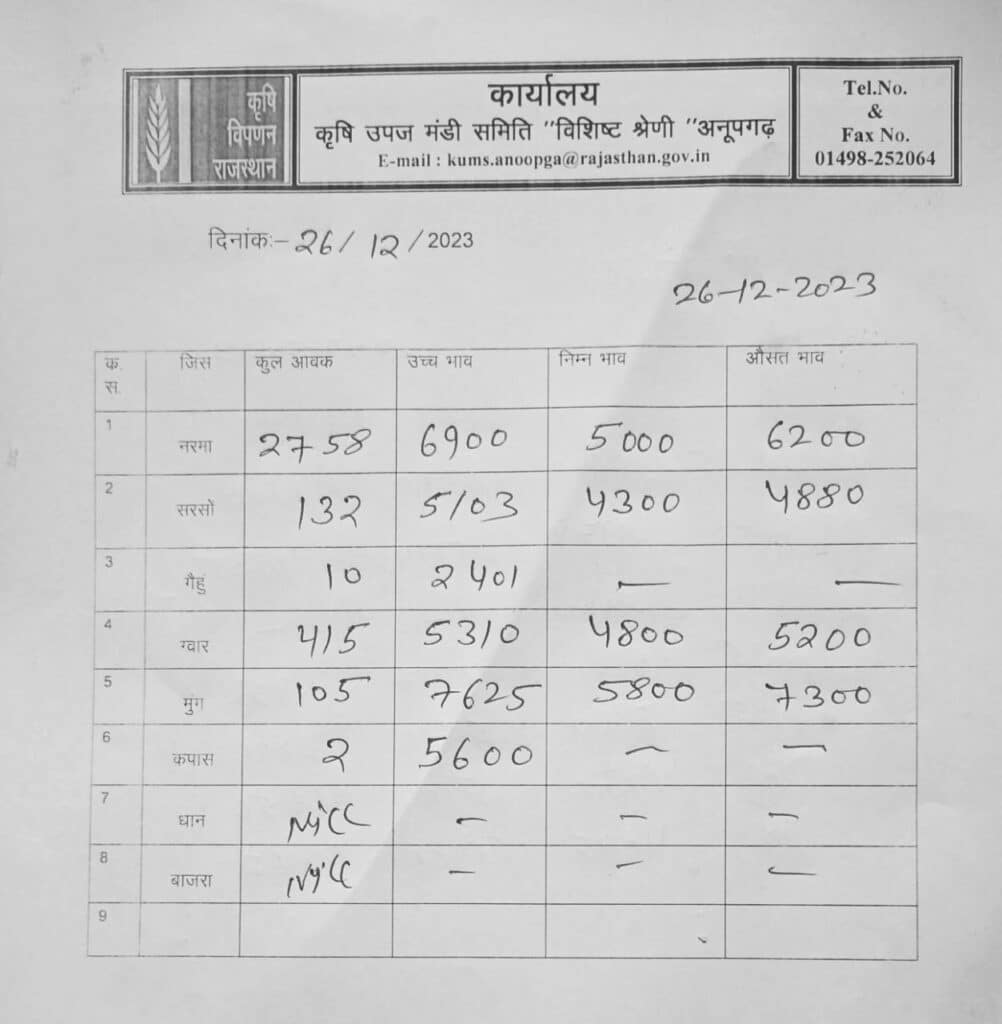 कृषि
विपणन
राजस्थान
कार्यालय
कृषि उपज मंडी समिति "विशिष्ट श्रेणी "अनूपगढ़
E-mail : kums.anoopga@rajasthan.gov.in
Tel.No.
&
Fax No.
01498-252064
दिनांकः- 26/12/2023
26-12-2023
क. स. जिस कुल आवक उच्च भाव निम्न भाव औसत भाव
1 नरमा 2758 6900 5000 6200
2 सरसो 132 5103 4300 4880
3 गैहुं 10 2401 — —
4 ग्वार 415 5310 4800 5200
5 मुंग 105 7625 5800 7300
6 कपास 2 5600 — —
7 धान Nill - - -
8 बाजरा Nill - - -
9